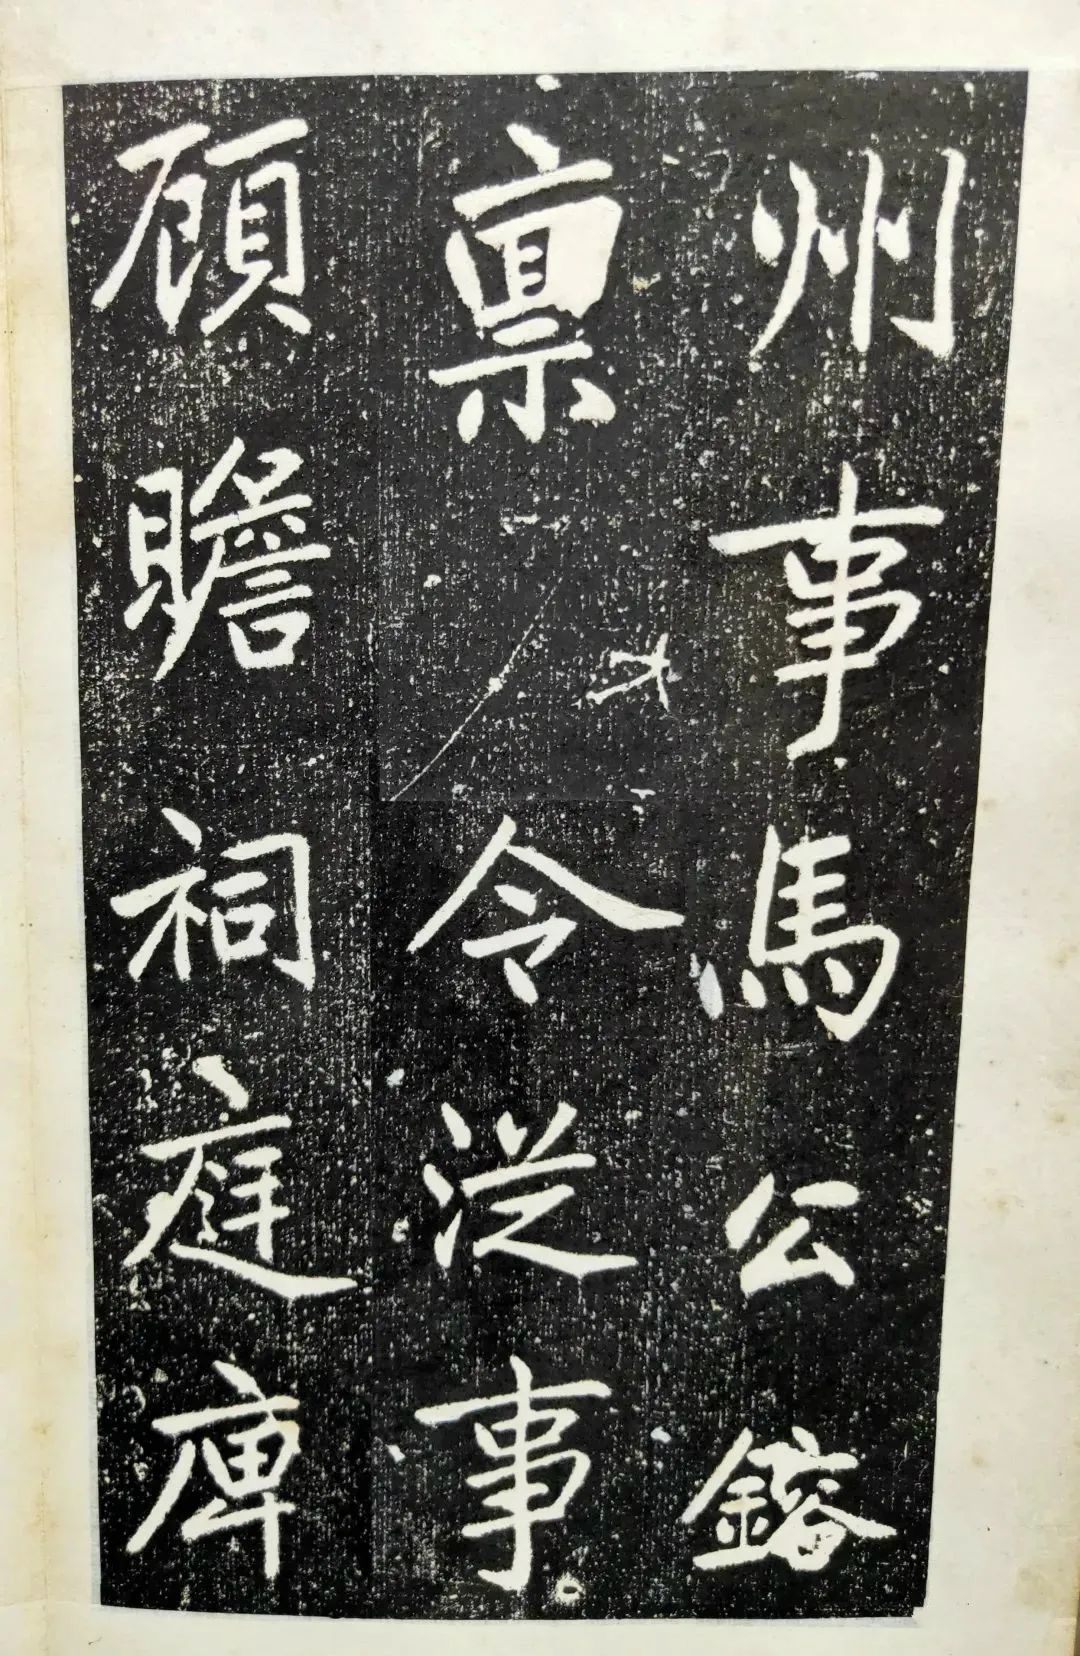 州事馬公鎔
禀令從事
顧瞻祠庭庳